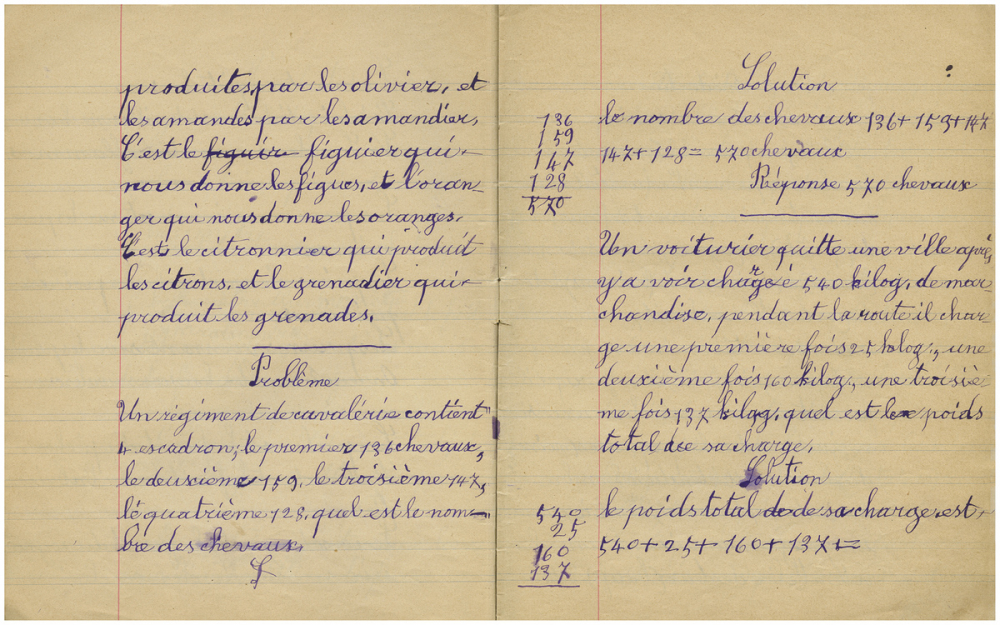 produites, par les olivier, et
les amandes par les amandier,
C'est le figuir figuier qui
nous donne les figues, et l'oran-
ger qui nous donne les oranges.
C'est le citronnier qui produit
les citrons, et le grenadier qui
produit les grenades.
Problême
Un régiment de cavalérie contient
4 escadron; le premier 136 chevaux,
le deuxième 159, le troisième 147,
le quatrième 128, quel est le nom-
bre des chevaux.
S
Solution
136
159
147
128
570
le nombre des chevaux 136+159+147
147+128= 570 chevaux
Réponse 570 chevaux
Un voiturier quitte une ville après
y a voir chargé 540 kilog, de mar
chandise, pendant la route il char-
ge une première fois 25 kilog., une
deuxième fois 160 kilog., une troisiè
me fois 137 kilog, quel est le poids
total de sa charge.
Solution
540
25
160
137
le poids total de de sa charge est
540+25+160+137=